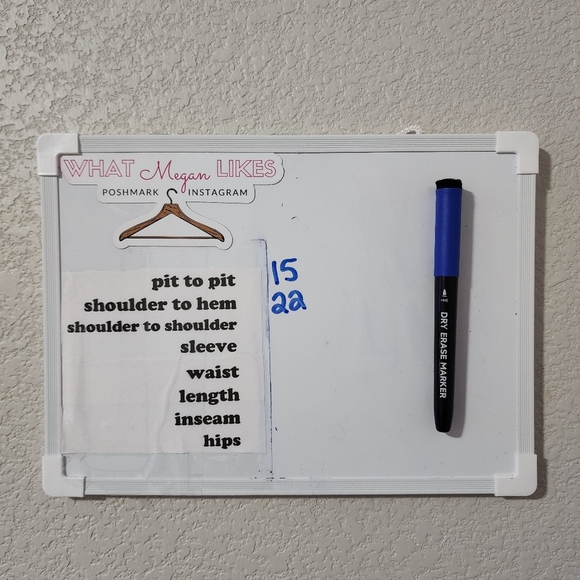 WHAT Megan LIKES
POSHMARK INSTAGRAM
pit to pit 15
shoulder to hem 22
shoulder to shoulder
sleeve
waist
length
inseam
hips
DRY ERASE MARKER